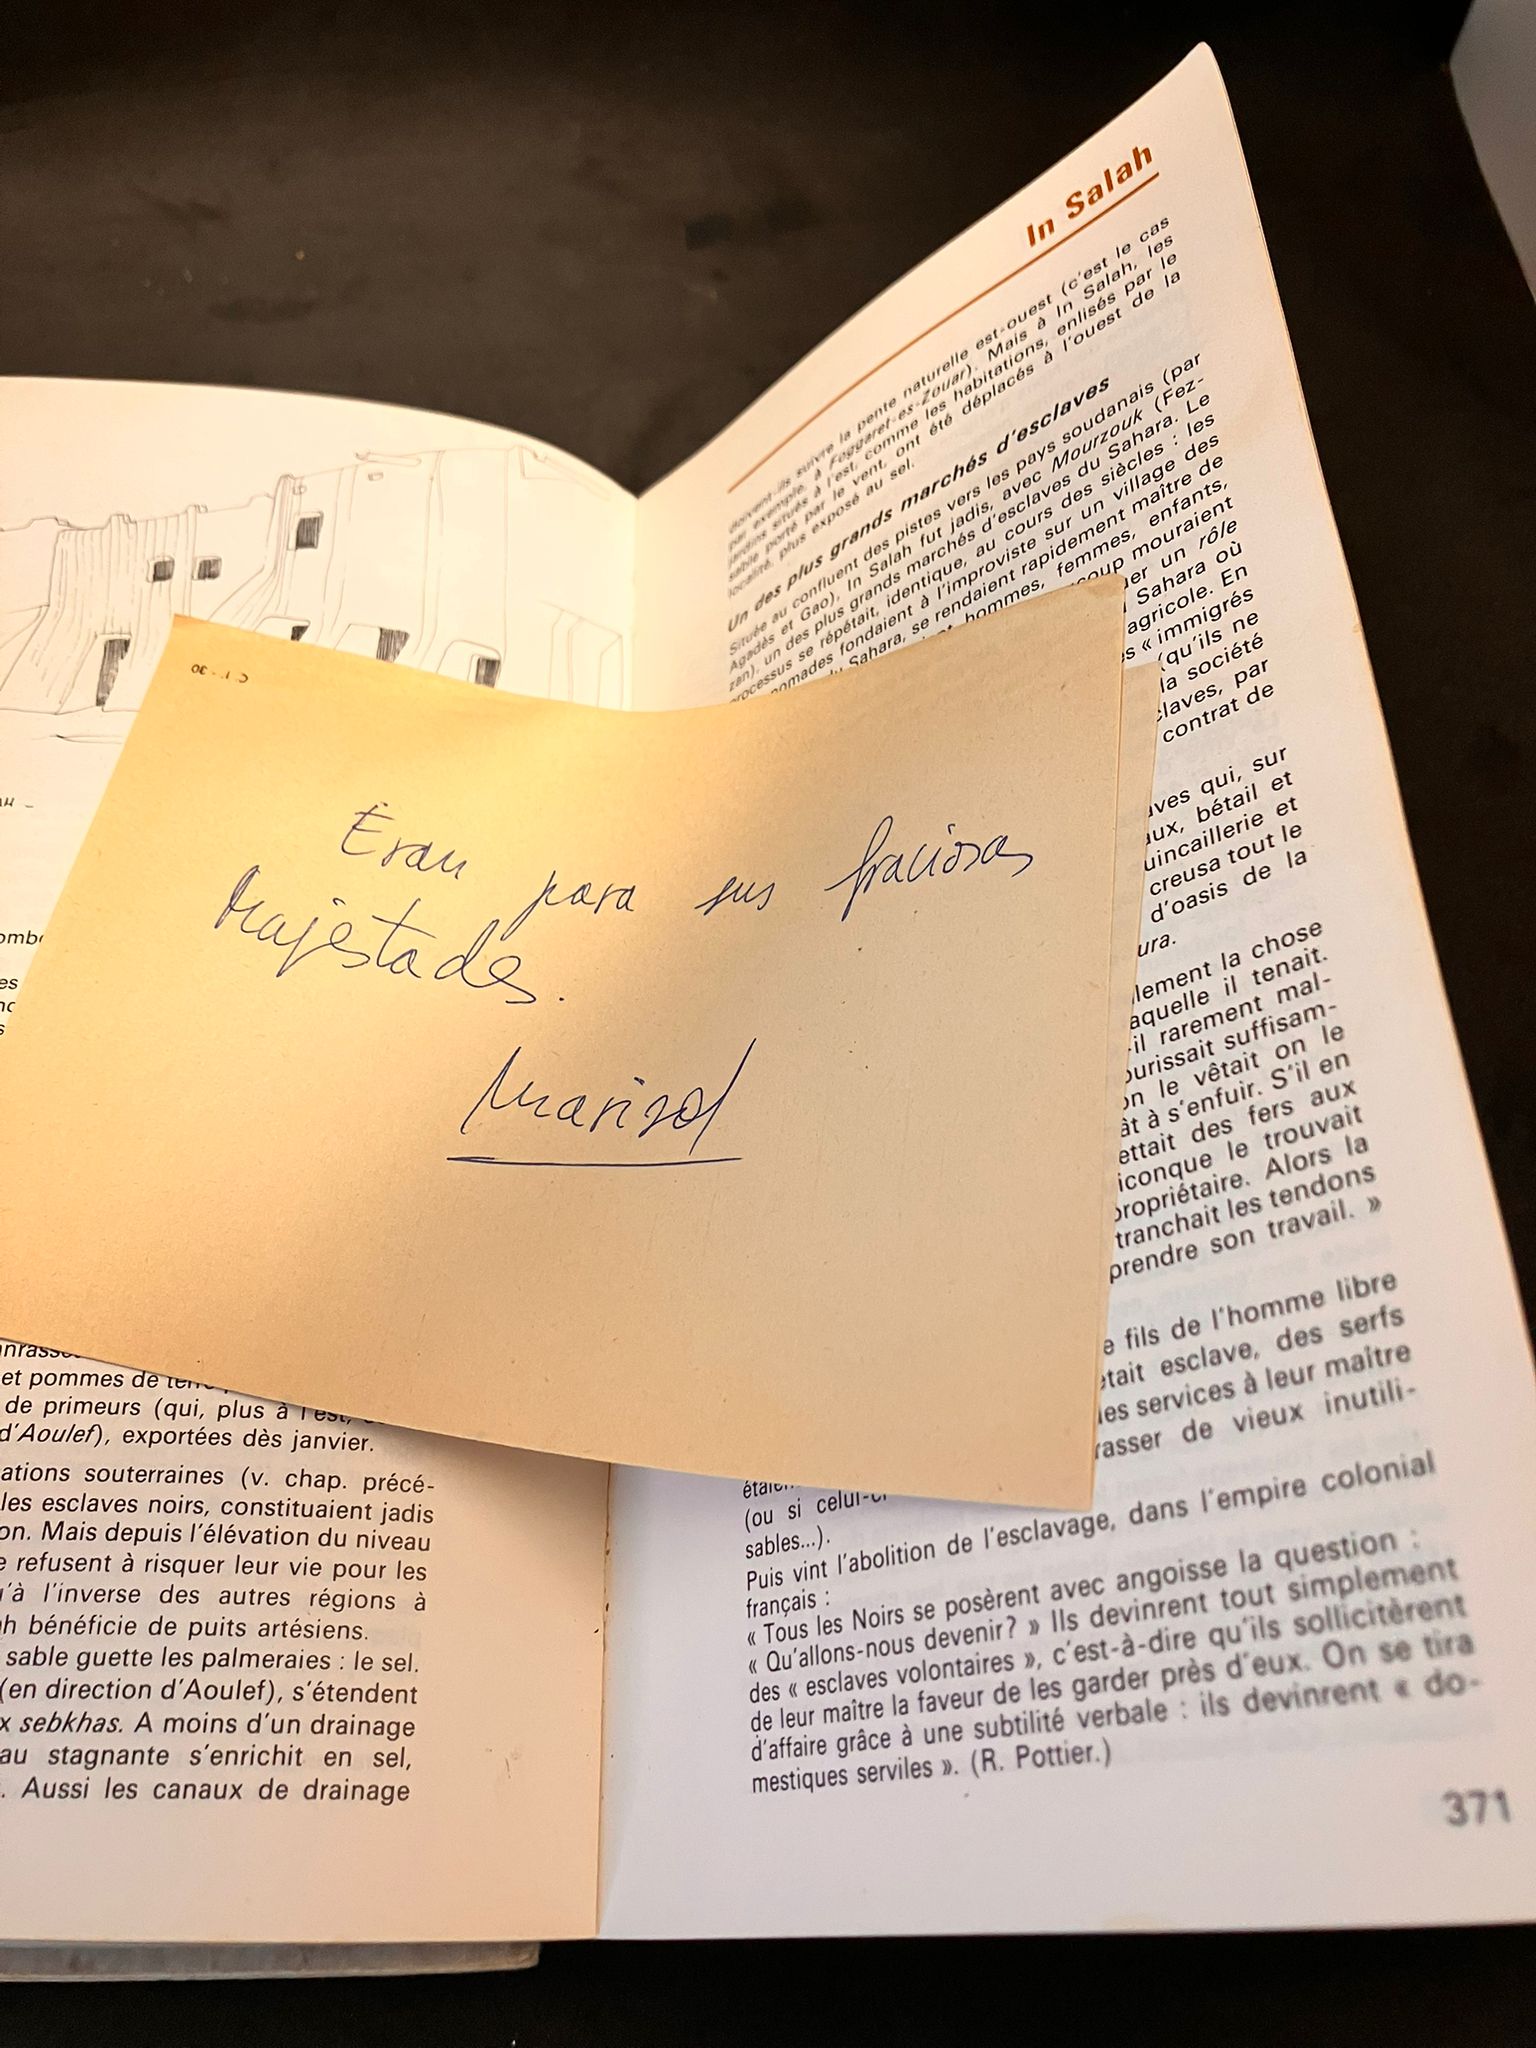 In Salah
doivent-ils suivre la pente naturelle est-ouest (c'est le cas
par exemple, à Foggaret-es-Zouar). Mais à In Salah, les
jardins situés à l'est, comme les habitations, enlisés par le
sable porté par le vent, ont été déplacés à l'ouest de la
localité, plus exposé au sel.
Un des plus grands marchés d'esclaves
Située au confluent des pistes vers les pays soudanais (par
Agadès et Gao), In Salah fut jadis, avec Mourzouk (Fez-
zan), un des plus grands marchés d'esclaves du Sahara. Le
processus se répétait, identique, au cours des siècles : les
nomades fondaient à l'improviste sur un village des
Sahara, se rendaient rapidement maître de
hommes, femmes, enfants,
mouraient
un rôle
Sahara où
agricole. En
« immigrés
(qu'ils ne
la société
par
contrat de
qui, sur
bétail et
et
creusa tout le
d'oasis de la
la chose
il tenait.
il rarement mal-
suffisam-
le vêtait on le
à s'enfuir. S'il en
des fers aux
le trouvait
Alors la
tranchait les tendons
son travail. »
fils de l'homme libre
esclave, des serfs
services à leur maître
de vieux inutili-
(ou si
sables...).
Puis vint l'abolition de l'esclavage, dans l'empire colonial
français :
« Tous les Noirs se posèrent avec angoisse la question :
« Qu'allons-nous devenir? » Ils devinrent tout simplement
des « esclaves volontaires », c'est-à-dire qu'ils sollicitèrent
de leur maître la faveur de les garder près d'eux. On se tira
d'affaire grâce à une subtilité verbale : ils devinrent « do-
mestiques serviles ». (R. Pottier.)
371
Eran para sus graciosas
Majestades.
Marisol
et pommes de
de primeurs (qui, plus à l'est,
d'Aoulef), exportées dès janvier.
souterraines (v. chap. précé-
les esclaves noirs, constituaient jadis
Mais depuis l'élévation du niveau
refusent à risquer leur vie pour les
à l'inverse des autres régions à
bénéficie de puits artésiens.
sable guette les palmeraies : le sel.
(en direction d'Aoulef), s'étendent
sebkhas. A moins d'un drainage
stagnante s'enrichit en sel,
Aussi les canaux de drainage